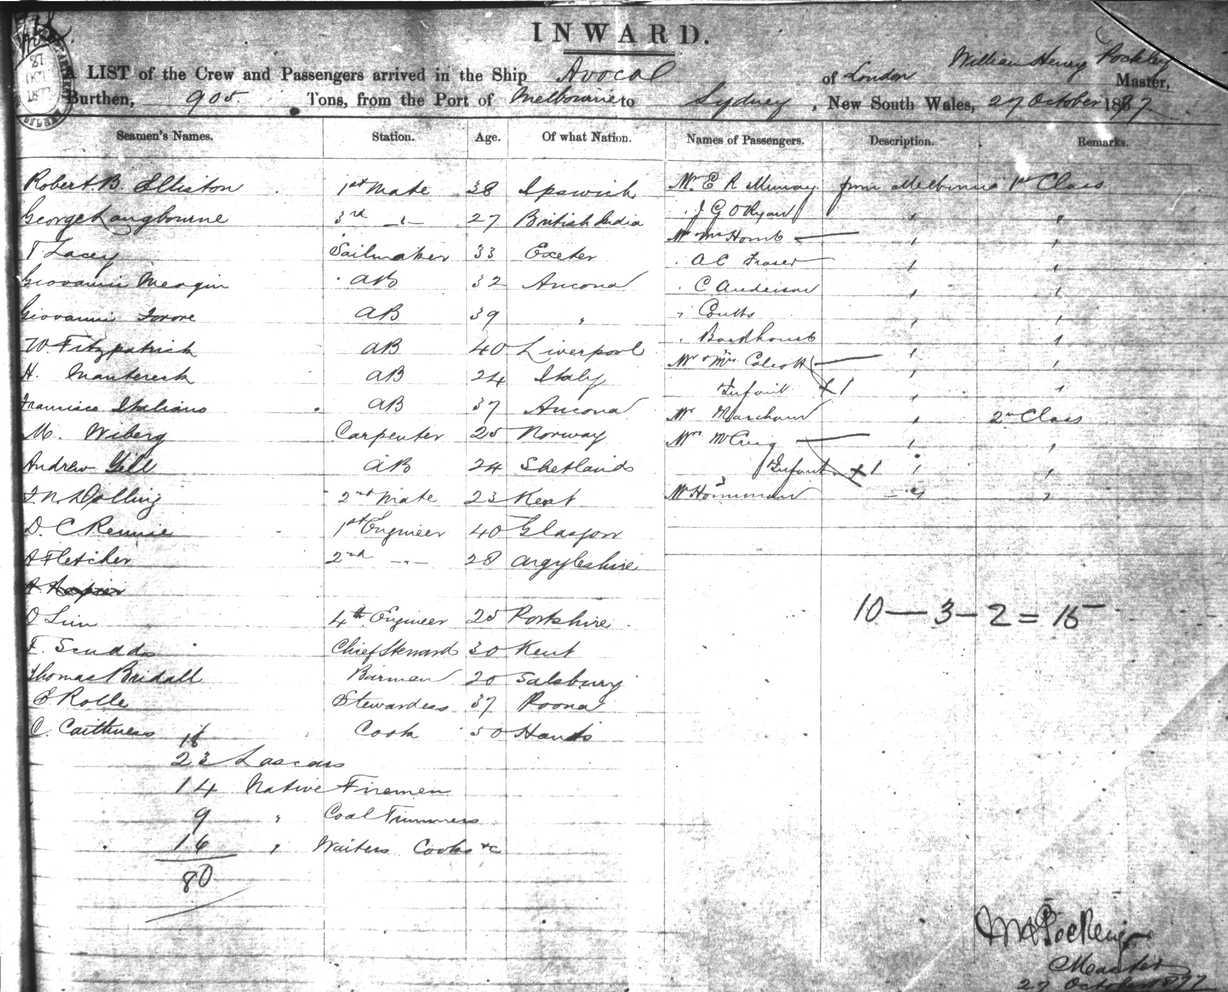 INWARD.
A LIST of the Crew and Passengers arrived in the Ship Avoca of London William Henry Pockley Master,
Burthen, 905. Tons, from the Port of Melbourne to Sydney, New South Wales, 27 October 1877
Seamen's Names. Station. Age. Of what Nation. Names of Passengers. Description. Remarks.
Robert B. Elliston 1st Mate 38 Ipswich Mr. E R Murray from Melbourne 1st Class
George Langbourne 3rd -"- 27 British India " J G O Ryan " "
T Lacey Sailmaker 33 Exeter Mr Mrs Homb " "
Giovanni AB 32 Ancona " A C Fraser " "
Giovanni AB 39 " " C Anderson " "
W. Fitzpatrick AB 40 Liverpool " Coutts " "
H. AB 24 Italy " Backhouse " "
Francisco Italiano AB 37 Ancona Mr & Mrs Calcott " "
Infant + 1 " "
M. Wiberg Carpenter 25 Norway Mr Marcham " 2nd Class
Andrew Gill AB 24 Shetlands Mrs McCraig " "
Infant + 1 " "
F. N. Dolling 2nd Mate 23 Kent Mr Horniman " "
D. C. Rennie 1st Engineer 40 Glasgow
A Fletcher 2nd -"- 28 Argyleshire
A Napier
O Linn 4th Engineer 25 Yorkshire
F. Scudds Chief Steward 30 Kent
Thomas Bridall Barman 20 Salsbury
E Rolle Stewardess 37 Poona
C. Caithness Cook 50 Hants
10 — 3 — 2 = 15
18
23 Lascars
14 Native Firemen
9 " Coal Trimmers
16 " Waiters Cooks &c
80
W H Pockley
Master
27 October 1877